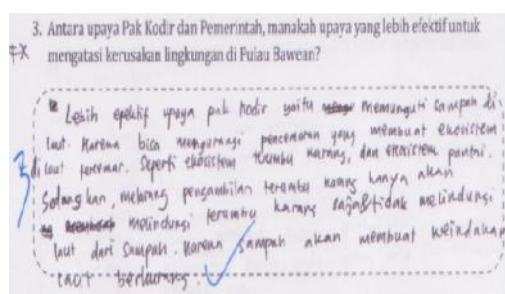 3. Antara upaya Pak Kodir dan Pemerintah, manakah upaya yang lebih efektif untuk
mengatasi kerusakan lingkungan di Pulau Bawean?
Lebih epektif upaya pak kodir yaitu memunguti sampah di
laut. Karena bisa mengurangi pencemaran yang membuat ekosistem
di laut tercemar. Seperti ekosistem terumbu karang, dan ekosistem pantai.
Sedangkan, melarang pengambilan terumbu karang hanya akan
melindungi terumbu karang saja & tidak melindungi
laut dari sampah. Karena sampah akan membuat keindahan
laut berkurang.